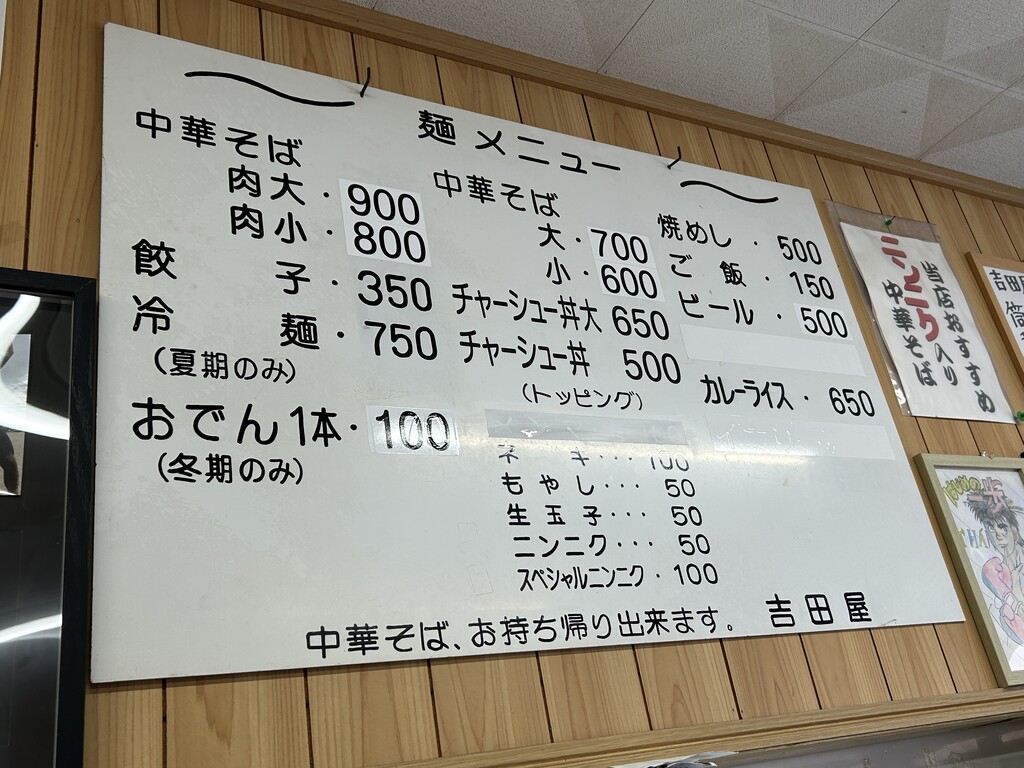 麺 メニュー
中華そば
肉大・900
肉小・800
餃子・350
冷麺・750
(夏期のみ)
おでん1本・100
(冬期のみ)
中華そば
大・700
小・600
チャーシュー丼大 650
チャーシュー丼 500
(トッピング)
ネギ・・・100
もやし・・・50
生玉子・・・50
ニンニク・・・50
スペシャルニンニク・100
焼めし・500
ご飯・150
ビール・500
カレーライス・650
中華そば、お持ち帰り出来ます。 吉田屋
当店おすすめ
ニンニク入り
中華そば
吉田
はじめの一歩